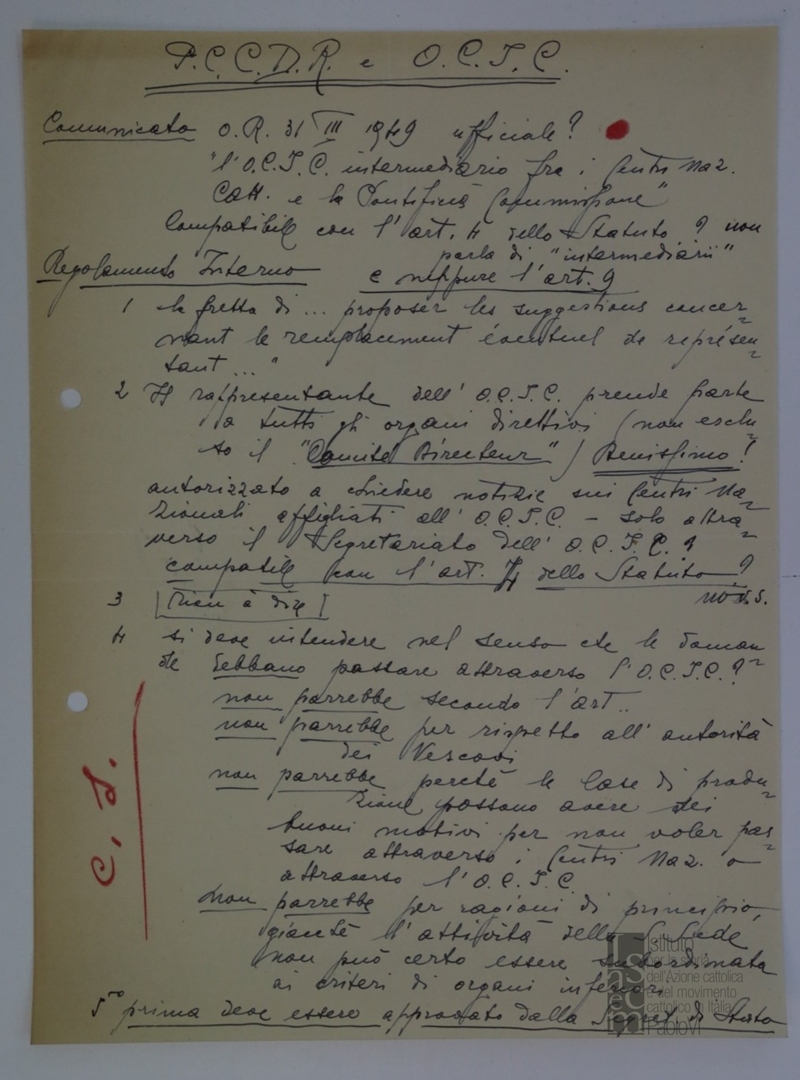 P.C.C.D.R. e O.C.I.C.
Comunicato O.R. 31 III 1949 ufficiale?
"l'O.C.I.C. intermediario fra i Centri Naz.
Catt. e la Pontificia Commissione"
Compatibile con l'art. 4 dello Statuto? non
parla di "intermediarii"
Regolamento Interno e neppure l'art. 9
1 la fretta di ... proposer les suggestions concer=
nant le remplacement éventuel de représen=
tant ..."
2 Il rappresentante dell'O.C.I.C. prende parte
a tutti gli organi direttivi (non esclu=
so il "Comité Directeur") Benissimo!
autorizzato a chiedere notizie sui Centri Na=
zionali affigliati all'O.C.I.C. - solo attra=
verso il Segretariato dell'O.C.I.C.?
compatibile con l'art. 4 dello Statuto?
3 [Rien à dire]
4 si deve intendere nel senso che le doman=
de debbano passare attraverso l'O.C.I.C.?
non parrebbe secondo l'art..
non parrebbe per rispetto all'autorità
dei Vescovi
non parrebbe perché le Case di produ=
zione possono avere dei
buoni motivi per non voler pas=
sare attraverso i Centri Naz. o
attraverso l'O.C.I.C
non parrebbe per ragioni di principio,
giacché l'attività della S. Sede
non può certo essere subordinata
ai criteri di organi inferiori
5° prima deve essere approvato dalla Segret. di Stato
Istituto
per la storia
dell'Azione cattolica
e del movimento
cattolico in Italia
Paolo VI